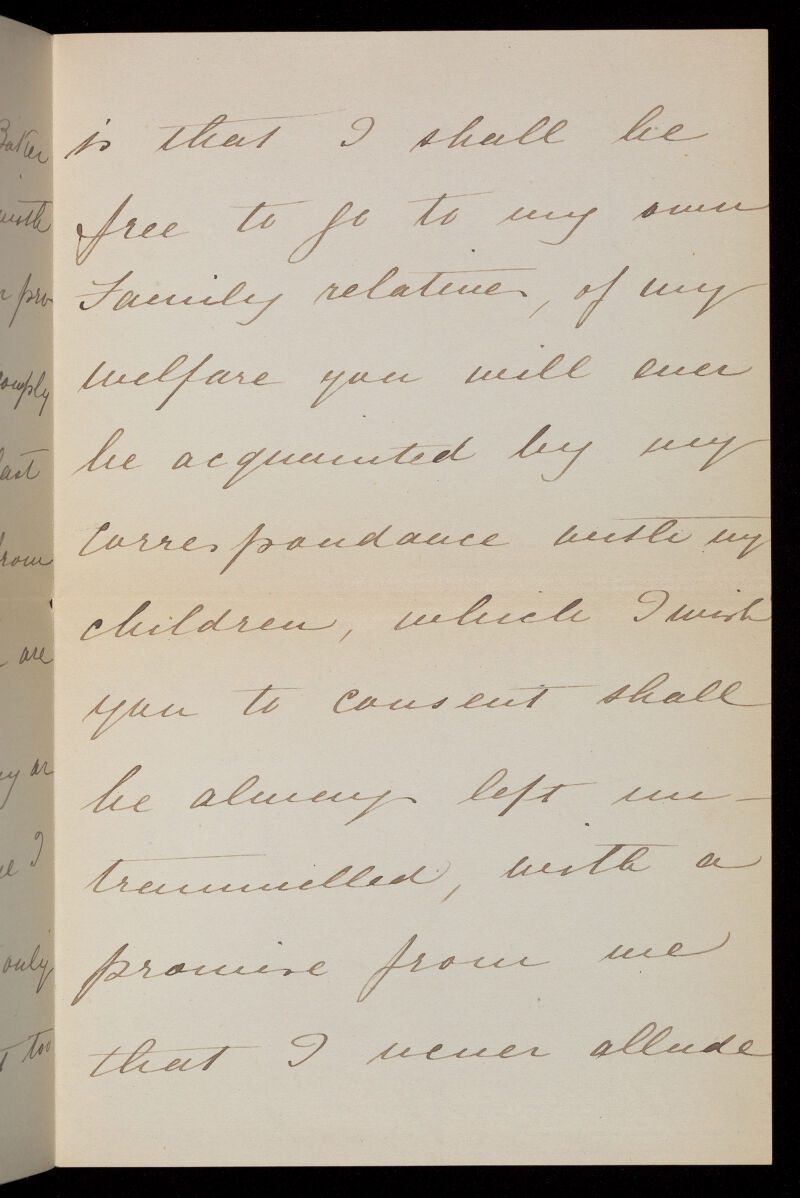 Baker
with
pro
comply
last
from
are
ny or
I
only
too
is that I shall be
free to go to my own
Family relatives, of my
welfare you will ever
be acquainted by my
correspondance with my
children, which I wish
you to consent shall
be always left un-
trammelled, with a
promise from me
that I never allude